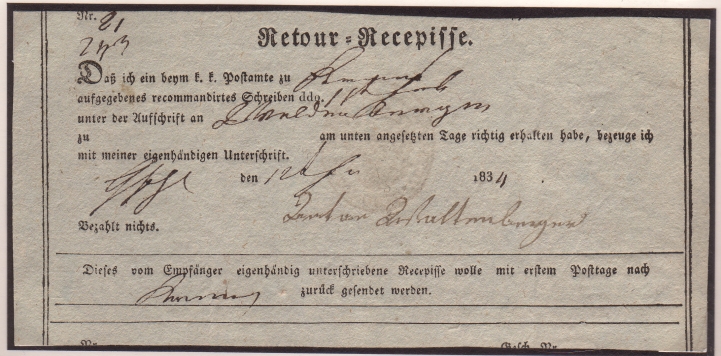 Nr. 21
Retour-Recepisse.
Daß ich ein beym k. k. Postamte zu
aufgegebenes recommandirtes Schreiben ddo.
unter der Aufschrift an
zu am unten angesetzten Tage richtig erhalten habe, bezeuge ich
mit meiner eigenhändigen Unterschrift.
den 12 1834
Anton Waltenberger
Bezahlt nichts.
Dieses vom Empfänger eigenhändig unterschriebene Recepisse wolle mit erstem Posttage nach
zurück gesendet werden.